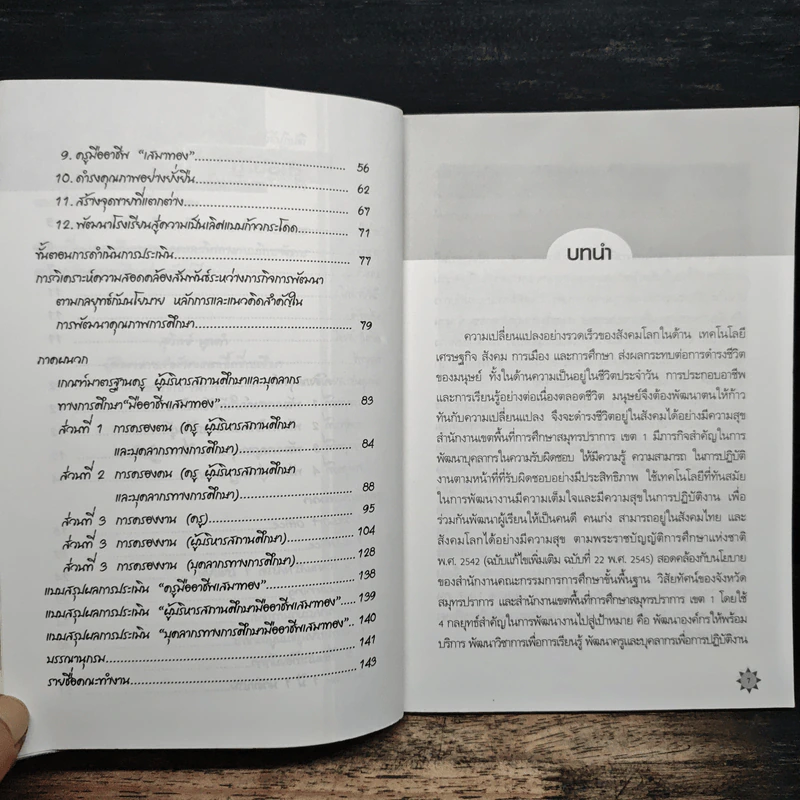 9. ครูมืออาชีพ “เสมาทอง”.......................................... 56
10. ดำรงคุณภาพอย่างยั่งยืน.......................................... 62
11. สร้างจุดขายที่แตกต่าง.......................................... 67
12. พัฒนาโรงเรียนสู่ความเป็นเลิศแบบก้าวกระโดด.................. 71
ขั้นตอนการดำเนินการประเมิน.......................................... 77
การวิเคราะห์ความสอดคล้องสัมพันธ์ระหว่างภารกิจการพัฒนา
ตามกลยุทธ์กับนโยบาย หลักการและแนวคิดสำคัญใน
การพัฒนาคุณภาพการศึกษา.......................................... 79
ภาคผนวก
เกณฑ์มาตรฐานครู ผู้บริหารสถานศึกษาและบุคลากร
ทางการศึกษา“มืออาชีพเสมาทอง”.................................. 83
ส่วนที่ 1 การครองตน (ครู ผู้บริหารสถานศึกษา
และบุคลากรทางการศึกษา).......................... 84
ส่วนที่ 2 การครองคน (ครู ผู้บริหารสถานศึกษา
และบุคลากรทางการศึกษา).......................... 88
ส่วนที่ 3 การครองงาน (ครู).................................. 95
ส่วนที่ 3 การครองงาน (ผู้บริหารสถานศึกษา).................. 104
ส่วนที่ 3 การครองงาน (บุคลากรทางการศึกษา).................. 128
แบบสรุปผลการประเมิน “ครูมืออาชีพเสมาทอง”.................. 138
แบบสรุปผลการประเมิน “ผู้บริหารสถานศึกษามืออาชีพเสมาทอง”.. 139
แบบสรุปผลการประเมิน “บุคลากรทางการศึกษามืออาชีพเสมาทอง”.. 140
บรรณานุกรม.......................................... 141
รายชื่อคณะทำงาน.......................................... 143
บทนำ
ความเปลี่ยนแปลงอย่างรวดเร็วของสังคมโลกในด้าน เทคโนโลยี
เศรษฐกิจ สังคม การเมือง และการศึกษา ส่งผลกระทบต่อการดำรงชีวิต
ของมนุษย์ ทั้งในด้านความเป็นอยู่ในชีวิตประจำวัน การประกอบอาชีพ
และการเรียนรู้อย่างต่อเนื่องตลอดชีวิต มนุษย์จึงต้องพัฒนาตนให้ก้าว
ทันกับความเปลี่ยนแปลง จึงจะดำรงชีวิตอยู่ในสังคมได้อย่างมีความสุข
สำนักงานเขตพื้นที่การศึกษาสมุทรปราการ เขต 1 มีภารกิจสำคัญในการ
พัฒนาบุคลากรในความรับผิดชอบ ให้มีความรู้ ความสามารถ ในการปฏิบัติ
งานตามหน้าที่ที่รับผิดชอบอย่างมีประสิทธิภาพ ใช้เทคโนโลยีที่ทันสมัย
ในการพัฒนางานมีความเต็มใจและมีความสุขในการปฏิบัติงาน เพื่อ
ร่วมกันพัฒนาผู้เรียนให้เป็นคนดี คนเก่ง สามารถอยู่ในสังคมไทย และ
สังคมโลกได้อย่างมีความสุข ตามพระราชบัญญัติการศึกษาแห่งชาติ
พ.ศ. 2542 (ฉบับแก้ไขเพิ่มเติม ฉบับที่ 22 พ.ศ. 2545) สอดคล้องกับนโยบาย
ของสำนักงานคณะกรรมการการศึกษาขั้นพื้นฐาน วิสัยทัศน์ของจังหวัด
สมุทรปราการ และสำนักงานเขตพื้นที่การศึกษาสมุทรปราการ เขต 1 โดยใช้
4 กลยุทธ์สำคัญในการพัฒนางานไปสู่เป้าหมาย คือ พัฒนาองค์กรให้พร้อม
บริการ พัฒนาวิชาการเพื่อการเรียนรู้ พัฒนาครูและบุคลากรเพื่อการปฏิบัติงาน
7